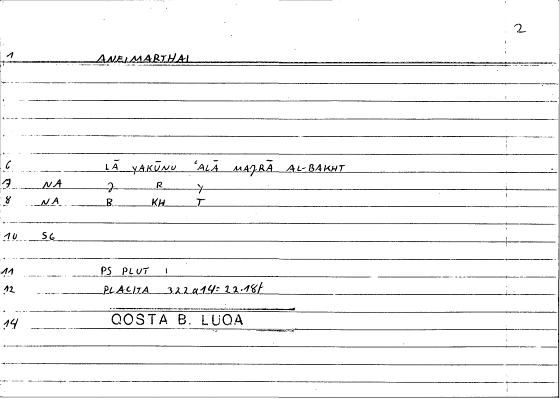 2
1 ANEIMARTHAI
6 LĀ YAKŪNU ʿALĀ MAJRĀ AL-BAKHT
7 NA J R Y
8 NA B KH T
10 SG
11 PS PLUT 1
12 PLACITA 322a14= 22.18f
14 QOSTA B. LUQA